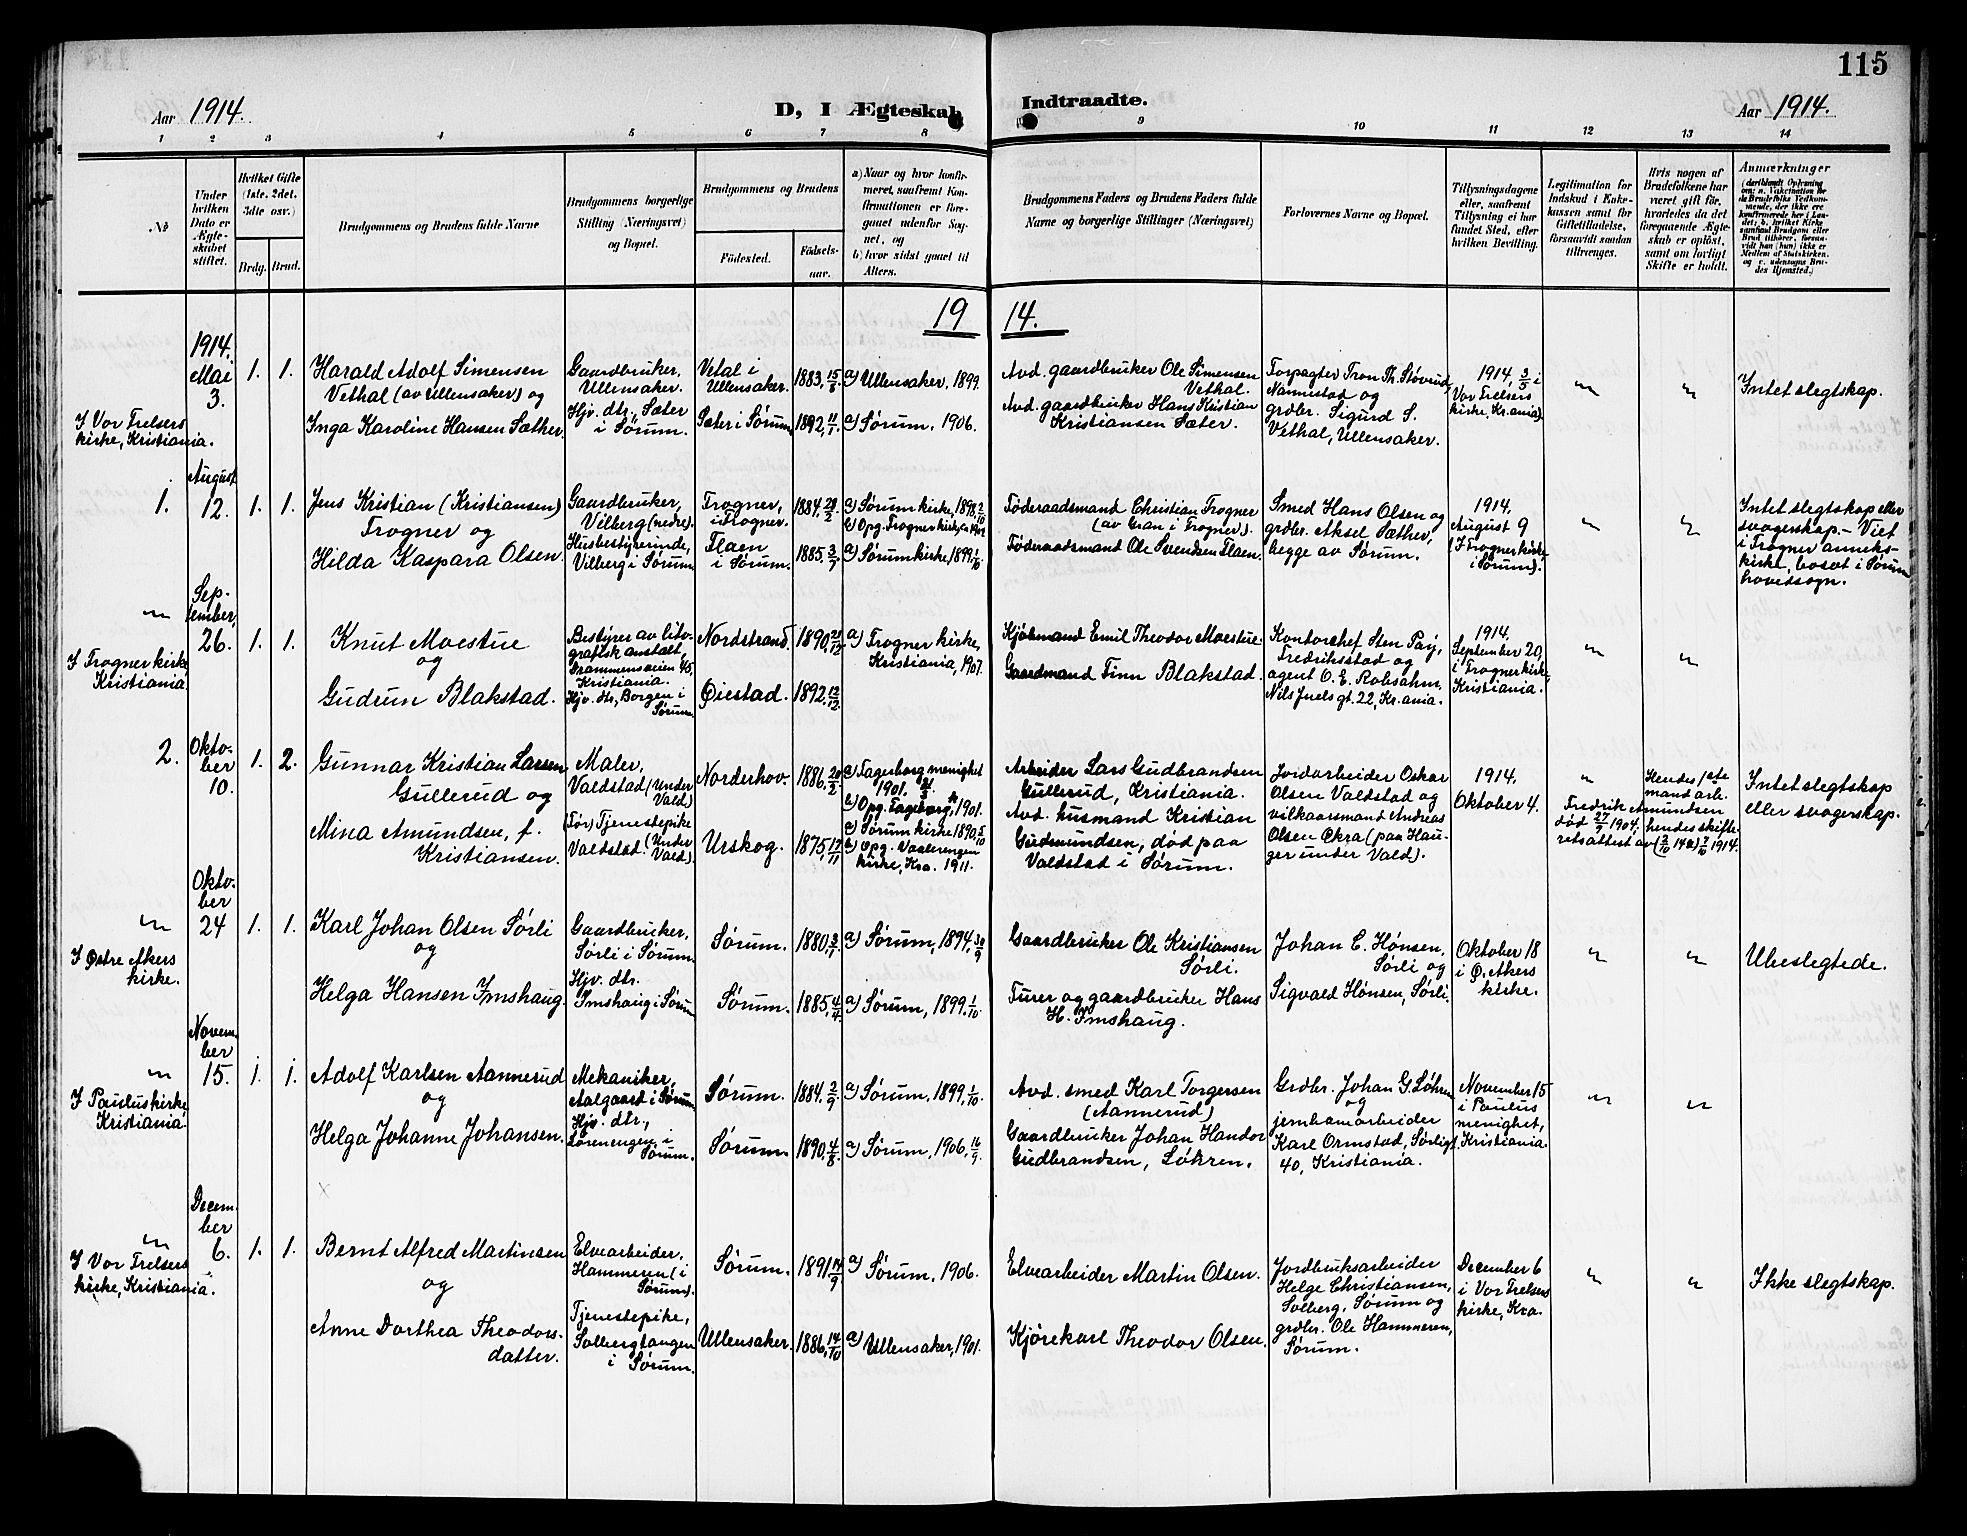 115
Aar 1914.
D, I Ægteskab
Indtraadte.
Aar 1914.
1 2 3 4 5 6 7 8 9 10 11 12 13 14
No
Under hvilken Dato er Ægteskabet stiftet.
Hvilket Gifte (1ste, 2det, 3dte osv.)
Brdg. Brud.
Brudgommens og Brudens fulde Navne
Brudgommens borgerlige Stilling (Næringsvei) og Bopæl.
Brudgommens og Brudens
Födested.
Födselsaar.
a) Naar og hvor konfirmeret, saafremt Konfirmationen er foregaaet udenfor Sognet, og
b) hvor sidst gaaet til Alters.
Brudgommens Faders og Brudens Faders fulde Navne og borgerlige Stillinger (Næringsvei)
Forlovernes Navne og Bopæl.
Tillysningsdagene eller, saafremt Tillysning ei har fundet Sted, efter hvilken Bevilling.
Legitimation for Indskud i Enkekassen samt for Giftetilladelse, forsaavidt saadan tiltrænges.
Hvis nogen af Brudefolkene har været gift för, hvorledes da det foregaaende Ægteskab er oplöst, samt om lovligt Skifte er holdt.
Anmærkninger
(deriblandt Oplysning om: a. Vakcination for de Brudefolks Vedkommende, der ikke ere konfirmerede her i Landet; b. hvilket Kirkesamfund Brudgom eller Brud tilhörer, forsaavidt han (hun) ikke er Medlem af Statskirken. og c. udensogns Brudes Hjemsted.)
19 14.
1914.
Mai
3.
I Vor Frelsers kirke, Kristiania.
1. 1.
Harald Adolf Simensen
Vethal (av Ullensaker) og
Inga Karoline Hansen Sæther.
Gaardbruker,
Ullensaker.
Hjv. dtr., Sæter
i Sørum.
Vetal i
Ullensaker.
Sæter i Sørum
1883, 15/8
1892, 11/1
a) Ullensaker, 1899.
a) Sørum, 1906.
Avd. gaardbruker Ole Simensen
Vethal.
Avd. gaardbruker Hans Kristian
Kristiansen Sæter.
Forpagter Tron Th. Støvrud,
Nannestad og
grdbr. Sigurd S.
Vethal, Ullensaker.
1914, 3/5 i
Vor Frelsers
kirke, Kr.ania).
" "
Intet slegtskap.
August
1. 12. 1. 1.
Jens Kristian (Kristiansen)
Frogner og
Hilda Kaspara Olsen.
Gaardbruker,
Vilberg (nedre).
Husbestyrerinde,
Vilberg i Sørum.
Frogner,
i Frogner.
Flaen
i Sørum.
1884, 28/2
1885, 3/7
a) Sørum kirke, 1898, 2/10
b) Opg. Frogner kirke, ca 1902
a) Sørum kirke, 1899, 1/10
Føderaadsmand Christian Frogner
(av Gran i Frogner).
Føderaadsmand Ole Svendsen Flaen.
Smed Hans Olsen og
grdbr. Aksel Sæther,
begge av Sørum.
1914
August 9
(I Frogner kirke
i Sørum).
" "
Intet slegtskap eller
svogerskap. - Viet
i Frogner anneks-
kirke, bosat i Sørum
hovedsogn.
September,
" 26. 1. 1.
I Frogner kirke
Kristiania.
Knut Moestue
og
Gudrun Blakstad.
Bestyrer av lito-
grafisk anstalt,
Drammensveien 45,
Kristiania.
Hjv. dtr., Borgen i
Sørum.
Nordstrand.
Øiestad.
1890, 28/12
1892, 12/12
a) Frogner kirke,
Kristiania, 1907.
Kjøbmand Emil Theodor Moestue.
Gaardmand Finn Blakstad.
Kontorchef Sten Pay,
Fredriksstad og
agent O. E. Robsahm,
Nils Juels gt. 22, Kr.ania.
1914.
September 20,
i Frogner kirke,
Kristiania.
" "
2. Oktober 10. 1. 2.
Gunnar Kristian Larsen
Gullerud og
Mina Amundsen, f.
Kristiansen.
Maler,
Valdstad (under
Vald)
(Før) Tjenestepike
Valdstad. (Under
Vald).
Norderhov.
Urskog.
1886, 20/2
1875, 17/11
a) Fagerborg menighet
1901.
b) Opg. Fagerborg, 1901.
a) Sørum kirke 1890, 5/10
b) Opg. Vaalerengen
kirke, Kra. 1911.
Arbeider Lars Gudbrandsen
Gullerud, Kristiania.
Avd. husmand Kristian
Gudmundsen, død paa
Valdstad i Sørum.
Jordarbeider Oskar
Olsen Valdstad og
vilkaarsmand Andreas
Olsen Ekra (paa Hau-
ger under Vald).
1914.
Oktober 4.
"
Hendes 1ste
mand arb.
Fredrik Amundsen
død 27/7 1904; hendes skifte-
retsattest av 2/10 1914.
Intet slegtskap
eller svogerskap.
Oktober
" 24 1. 1.
I Østre Akers
kirke.
Karl Johan Olsen Sørli
og
Helga Hansen Imshaug.
Gaardbruker,
Sørli i Sørum.
Hjv. dtr.
Imshaug i Sørum
Sørum.
Sørum.
1880, 3/7
1885, 4/4
a) Sørum, 1894, 30/9
a) Sørum, 1899, 1/10
Gaardbruker Ole Kristiansen
Sørli.
Furer og gaardbruker Hans
H. Imshaug.
Johan E. Hønsen,
Sørli og
Sigvald Hønsen, Sørli.
Oktober 18
i Ø. Akers
kirke.
" "
Ubeslegtede.
November
" 15. 1. 1.
I Pauluskirke
Kristiania.
Adolf Karlsen Aannerud
og
Helga Johanne Johansen.
Mekaniker,
Aalgaard i Sørum
Hjv. dtr.,
Lørenengen i
Sørum.
Sørum.
Sørum
1884, 2/9
1890, 4/8
a) Sørum, 1899, 1/10
a) Sørum, 1906, 16/9
Avd. smed Karl Torgersen
(Aannerud)
Gaardbruker Johan Handor
Gudbrandsen, Løkren.
Grdbr. Johan G. Løkren
og
jernbanarbeider
Karl Ormstad, Sørligt.
40, Kristiania.
November 15
i Paulus
menighet,
Kristiania.
" "
December
" 6. 1. 1.
I Vor Frelsers
kirke, Kristiania.
Bernt Alfred Martinsen
og
Anne Dorthea Theodors-
datter.
Elvearbeider,
Hammeren (i
Sørum).
Tjenestepike,
Solbergtangen
i Sørum.
Sørum.
Ullensaker.
1891 14/9
1886, 14/10
a) Sørum, 1906.
a) Ullensaker, 1901.
Elvearbeider Martin Olsen.
Kjørekarl Theodor Olsen.
Jordbruksarbeider
Helge Christiansen,
Solberg, Sørum og
grdbr. Ole Hammeren,
Sørum.
December 6
i Vor Frelsers
kirke, Kra.
" "
Ikke slegtskap.